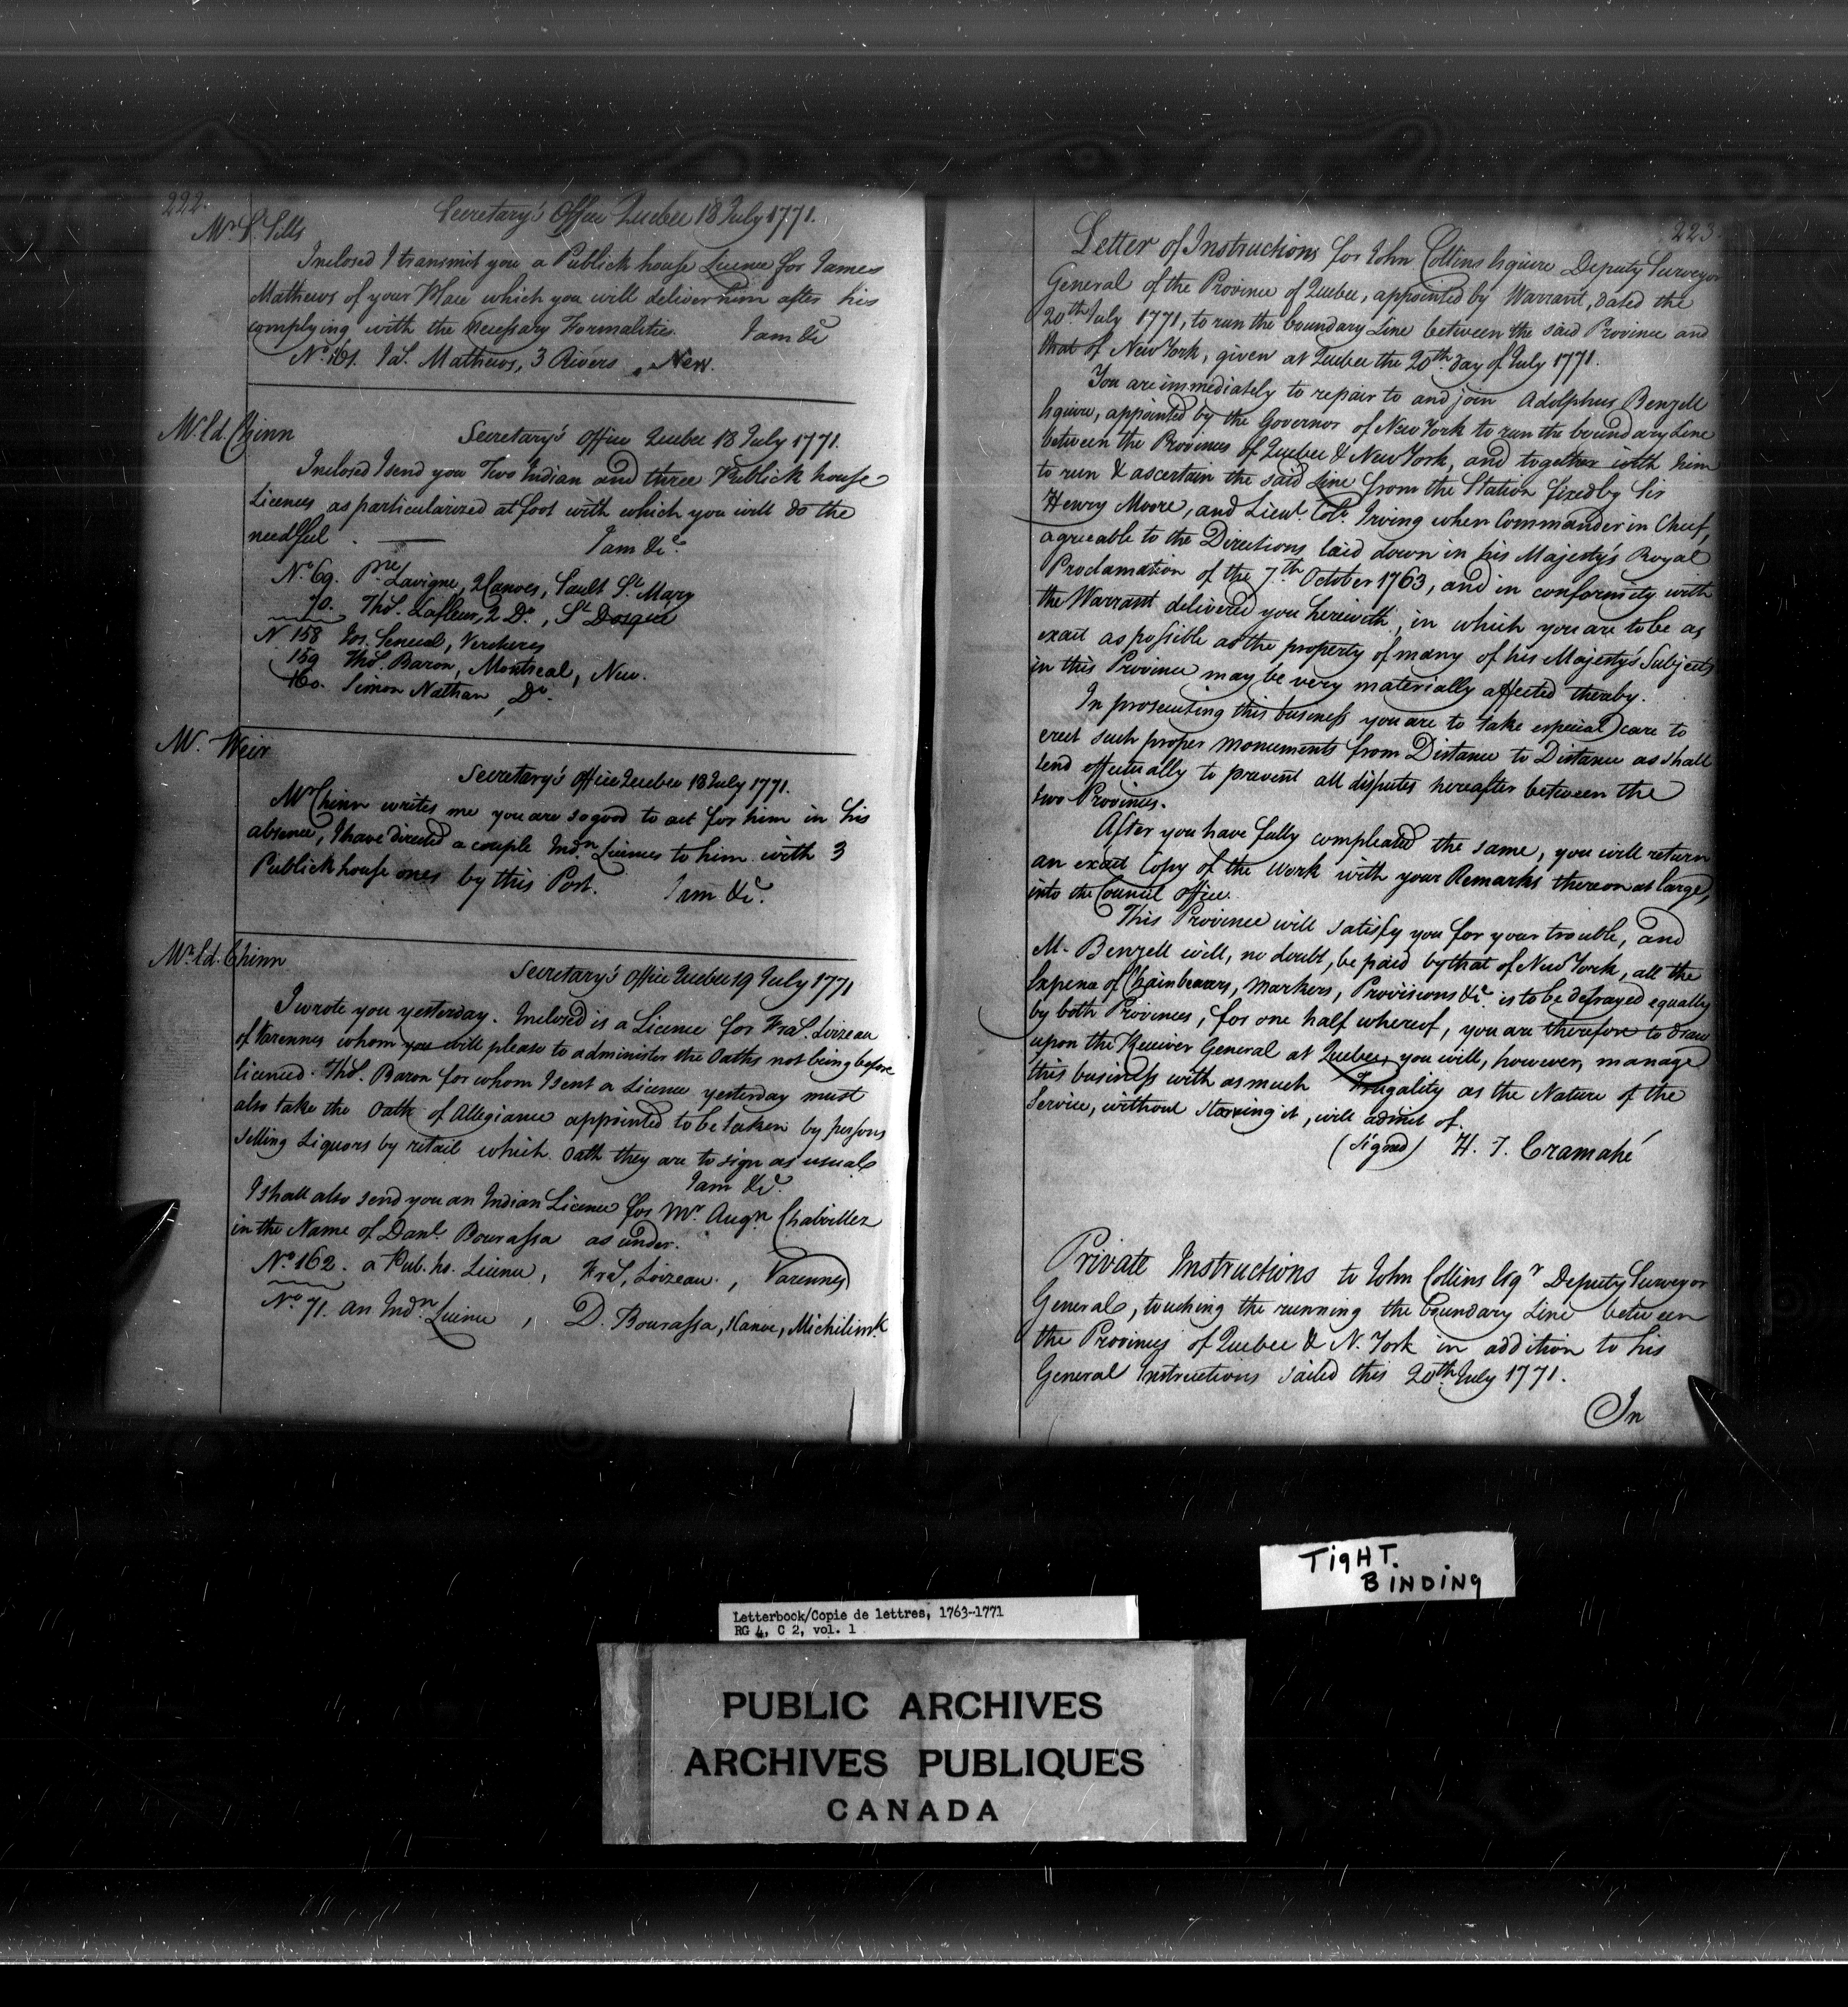 222.
Secretary's Office Quebec 18 July 1771.
Mr. S. Sills
Inclosed I transmit you a Publick house Licence for James
Mathews of your Place which you will deliver him after his
complying with the necessary Formalities. I am &c
No. 161. Jas. Mathews, 3 Rivers, New.
Mr. Ed. Chinn
Secretary's Office Quebec 18 July 1771.
Inclosed I send you Two Indian and three Publick house
Licences as particularized at foot with which you will do the
needful. I am &c.
No. 69. Pre. Lavigne, 2 Canoes, Sault St. Mary
70. Thos. Lafleur, 2 Do., St
N. 158 Jos. Senecal, Vercheres
159 Thos. Baron, Montreal, New.
160. Simon Nathan, Do.
M. Weir
Secretary's Office Quebec 18 July 1771.
Mr Chinn writes me you are so good to act for him in his
absence, I have directed a couple Indn. Licences to him with 3
Publick house ones by this Post. I am &c.
Mr. Ed. Chinn
Secretary's Office Quebec 19 July 1771
I wrote you yesterday. Inclosed is a Licence for Fras. Loizeau
of Varennes whom you will please to administer the Oaths not being before
licenced. Thos. Baron for whom I sent a Licence yesterday must
also take the Oath of Allegiance appointed to be taken by persons
selling Liquors by retail which Oath they are to sign as usual
I am &c.
I shall also send you an Indian Licence for Mr. Augn. Chabvillez
in the Name of Danl. Bourassa as under.
No. 162. a Pub. ho. Licence, Fras. Loizeau, Varennes
No. 71. an Indn. Licence, D. Bourassa, 1 Canoe, Michilimk
223.
Letter of Instructions for John Collins Esquire Deputy Surveyor
General of the Province of Quebec, appointed by Warrant, dated the
20th July 1771, to run the boundary Line between the said Province and
that of New York, given at Quebec the 20th day of July 1771.
You are immediately to repair to and join Adolphus Benzell
Esquire, appointed by the Governor of New York to run the boundary Line
between the Provinces of Quebec & New York, and together with him
to run & ascertain the said Line from the Station fixed by Sir
Henry Moore, and Lieut. Col. Irving when Commander in Chief,
agreeable to the Directions laid down in his Majesty's Royal
Proclamation of the 7th October 1763, and in conformity with
the Warrant delivered you herewith, in which you are to be as
exact as possible as the property of many of his Majesty's Subjects
in this Province may be very materially affected thereby.
In prosecuting this business you are to take especial care to
erect such proper monuments from Distance to Distance as shall
tend effectually to prevent all disputes hereafter between the
two Provinces.
After you have fully compleated the same, you will return
an exact Copy of the Work with your Remarks thereon at large,
into the Council Office.
This Province will satisfy you for your trouble, and
M. Benzell will, no doubt, be paid by that of New York, all the
Expence of Chainbearers, Markers, Provisions &c is to be defrayed equally
by both Provinces, for one half whereof, you are therefore to draw
upon the Receiver General at Quebec, you will, however, manage
this business with as much Frugality as the Nature of the
Service, without starving it, will admit of.
(Signed) H. T. Cramahé
Private Instructions to John Collins Esqr. Deputy Surveyor
General, touching the running the boundary Line between
the Provinces of Quebec & N. York in addition to his
General Instructions dated this 20th July 1771.
In
TIGHT.
BINDING
Letterbook/Copie de lettres, 1763-1771
RG 4, C 2, vol. 1
PUBLIC ARCHIVES
ARCHIVES PUBLIQUES
CANADA